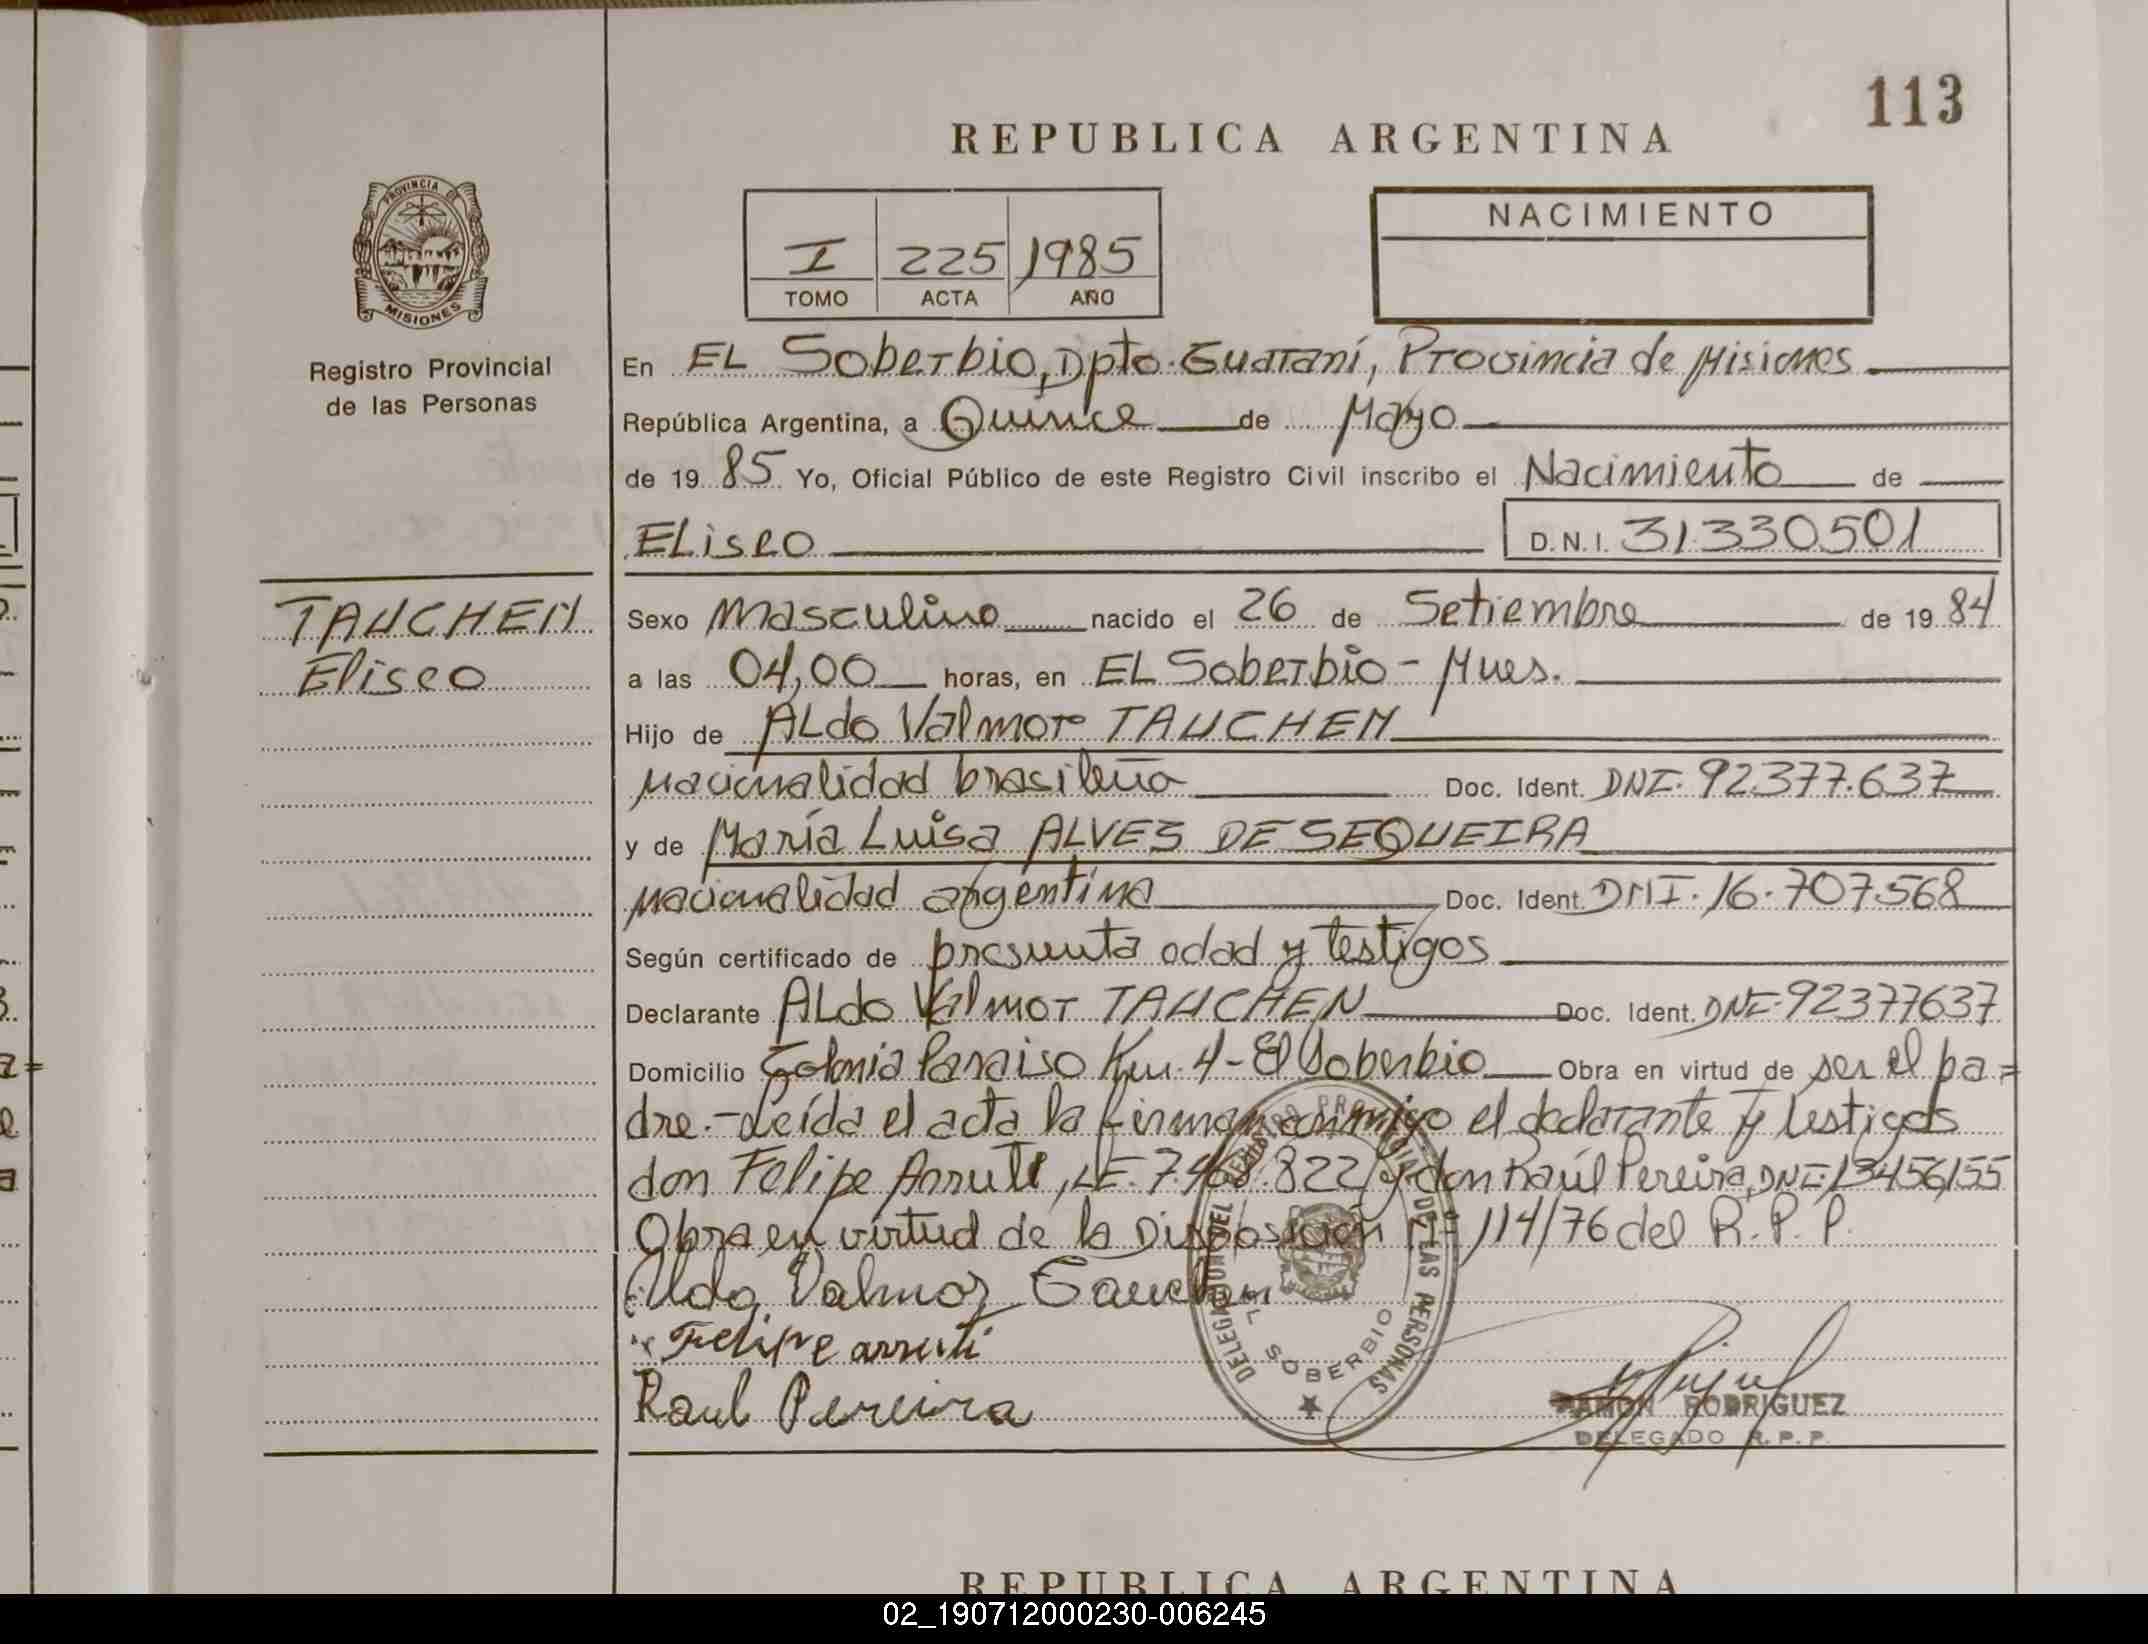 113
REPUBLICA ARGENTINA
PROVINCIA DE
MISIONES
Registro Provincial
de las Personas
I 225 1985
TOMO ACTA AÑO
NACIMIENTO
En EL Soberbio, Dpto. Guaraní, Provincia de Misiones
República Argentina, a Quince de Mayo
de 19 85 Yo, Oficial Público de este Registro Civil inscribo el Nacimiento de
ELiseo D.N.I. 31.330.501
TAUCHEN
Eliseo
Sexo Masculino nacido el 26 de Setiembre de 19 84
a las 04,00 horas, en EL Soberbio - Mnes.
Hijo de ALdo Valmor TAUCHEN
nacionalidad brasileña Doc. Ident. DNI. 92.377.637
y de María Luisa ALVES DE SEQUEIRA
nacionalidad argentina Doc. Ident. DNI. 16.707.568
Según certificado de presunta edad y testigos
Declarante ALdo Valmor TAUCHEN Doc. Ident. DNI. 92377637
Domicilio Colonia Paraiso Km. 4 - El Soberbio Obra en virtud de ser el pa=
dre.- Leída el acta la firman conmigo el declarante y testigos
don Felipe Arruti, LE. 7.468.822 y don Raúl Pereira, DNI. 13456155
Obra en virtud de la Disposición Nº 114/76 del R.P.P.
Aldo Valmor Tauchen
Felipe arruti
Raul Pereira
DELEGACION DEL REGISTRO PROVINCIAL DE LAS PERSONAS
EL SOBERBIO
RAMON RODRIGUEZ
DELEGADO R.P.P.
REPUBLICA ARGENTINA
02_190712000230-006245